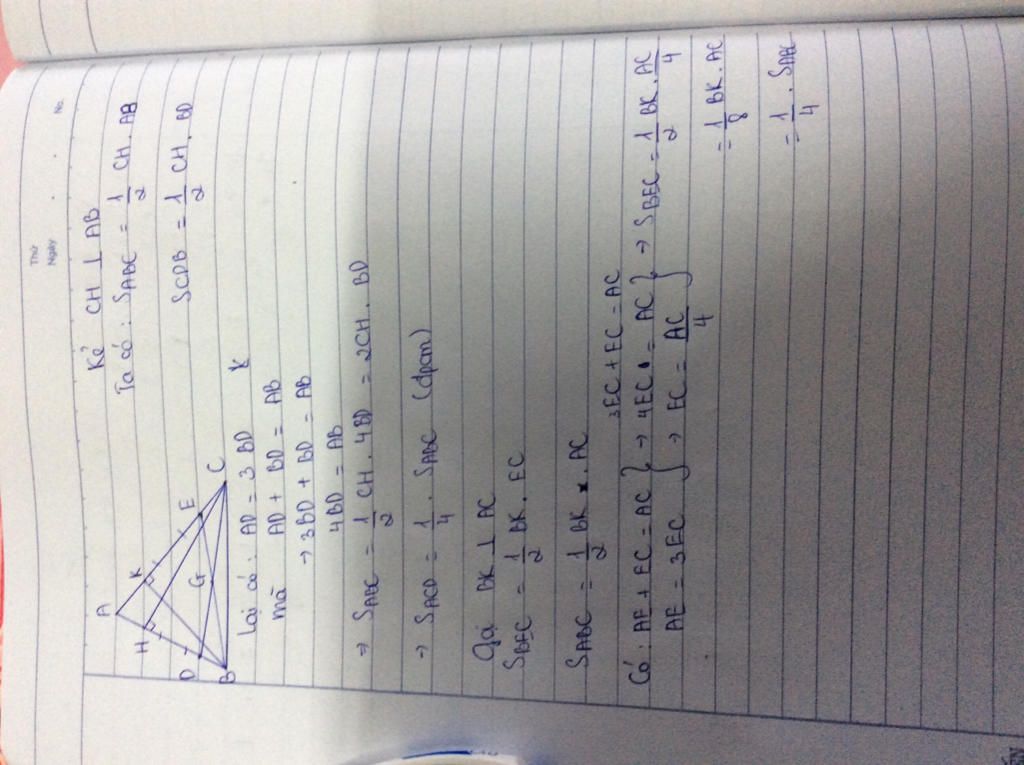 Thứ
Ngày
No.
Kẻ CH ⊥ AB
Ta có: SABC = 1/2 CH. AB
SCDB = 1/2 CH. BD
A
H
K
D
G
E
B
C
Lại có: AD = 3 BD
mã AD + BD = AB
→ 3BD + BD = AB
4BD = AB
→ SABC = 1/2 CH. 4BD = 2CH. BD
→ SACD = 1/4 . SABC (đpcm)
Gọi BK ⊥ AC
SBEC = 1/2 BK. EC
SABC = 1/2 BK . AC
3EC + EC = AC
Có: AE + EC = AC } → 4EC = AC } → SBEC = 1/2 BK. AC/4
AE = 3EC } → EC = AC/4
= 1/8 BK. AC
= 1/4 . SABC